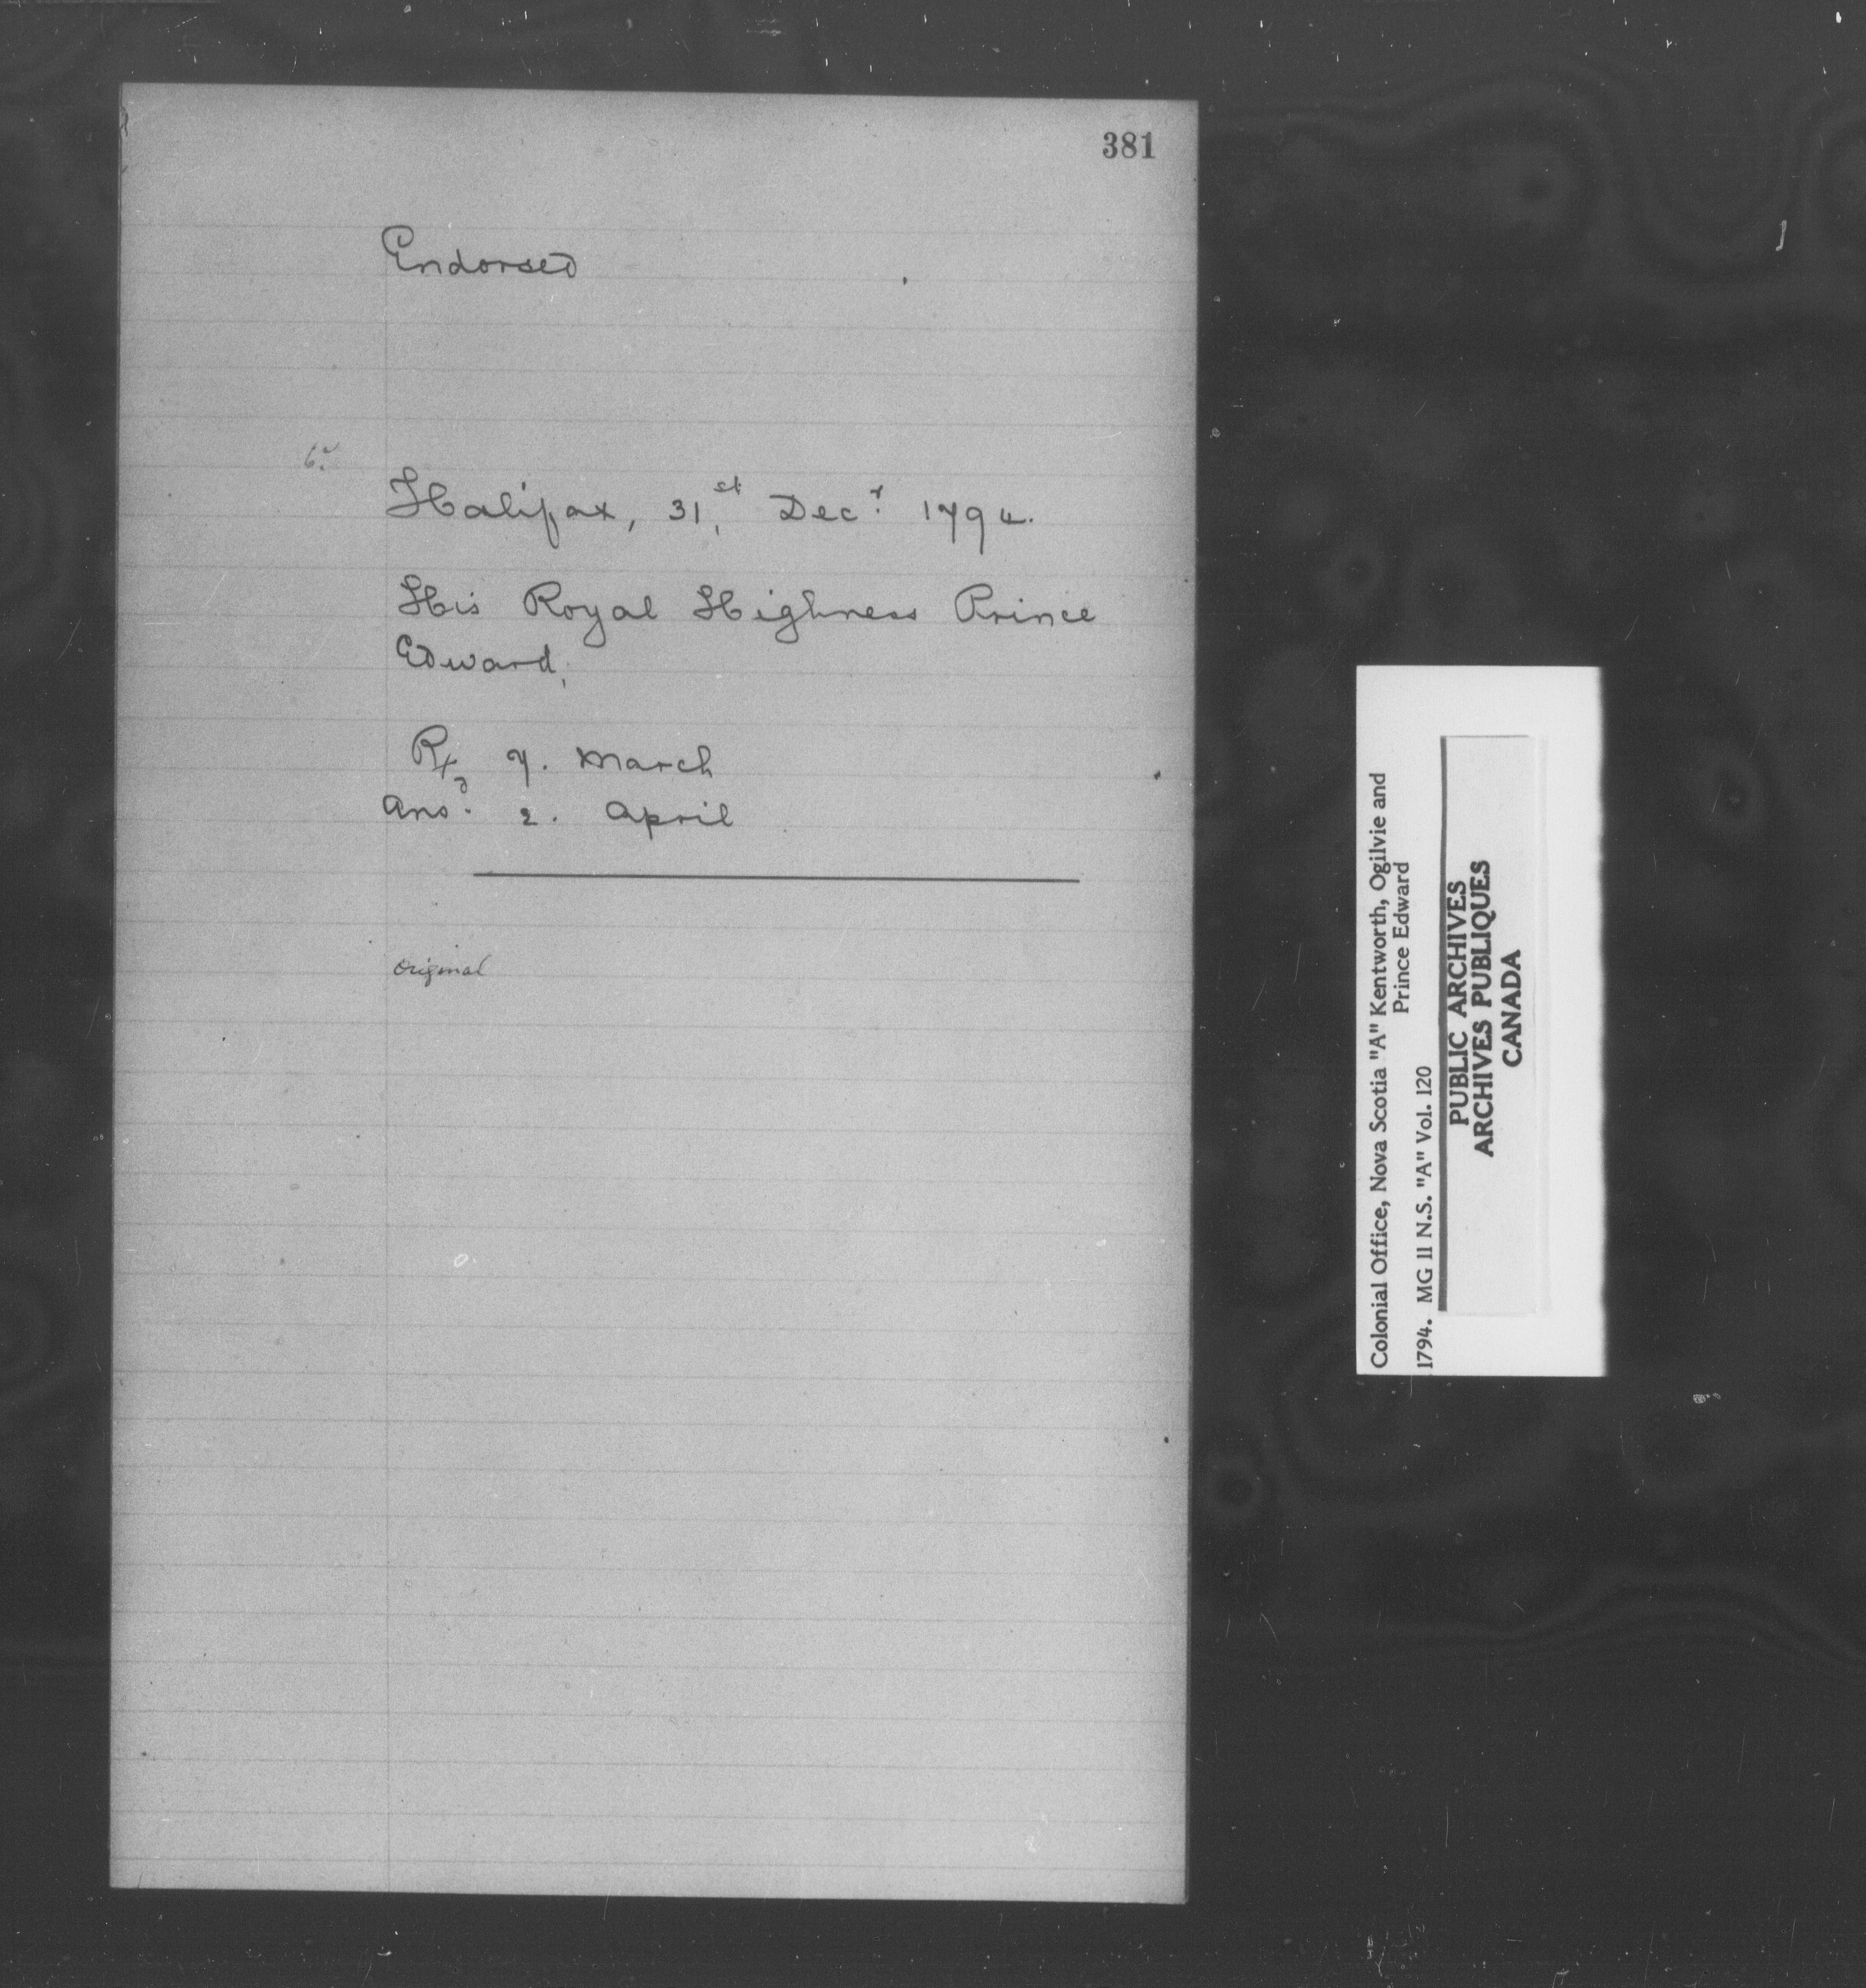 381
Endorsed
Halifax, 31,st Decr. 1794.
His Royal Highness Prince
Edward,
Rx 7. March
Ansd. 2. April
Original
Colonial Office, Nova Scotia "A" Kentworth, Ogilvie and
Prince Edward
1794. MG 11 N.S. "A" Vol. 120
PUBLIC ARCHIVES
ARCHIVES PUBLIQUES
CANADA